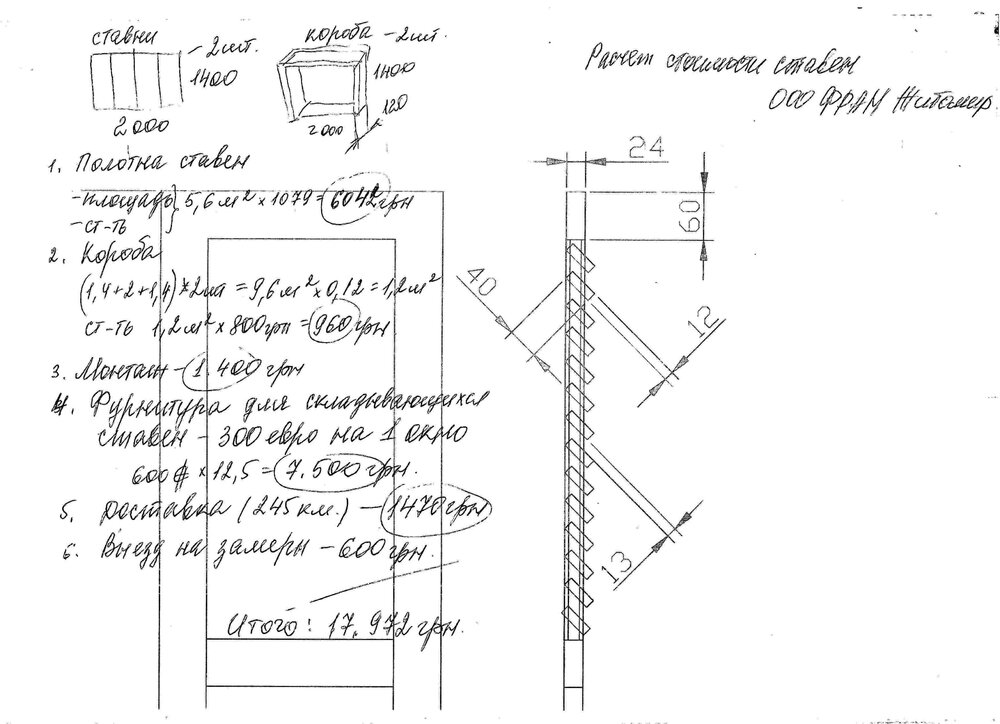 ставни
- 2шт.
1400
2000
короба - 2шт.
1400
120
2000
Расчет стоимости ставен
ООО ФРАМ Житомир
1. Полотна ставен
- площадь } 5,6 м² × 1079 = 6042 грн
- ст-ть
2. Короба
(1,4+2+1,4)*2шт = 9,6м² × 0,12 = 1,2м²
ст-ть 1,2м² × 800грн = 960 грн
3. Монтаж - 1.400 грн
4. Фурнитура для складывающихся
ставен - 300 евро на 1 окно
600 × 12,5 = 7.500 грн.
5. Доставка (245 км.) - 1470 грн
6. Выезд на замеры - 600 грн.
Итого: 17.972 грн.
24
60
40
12
13